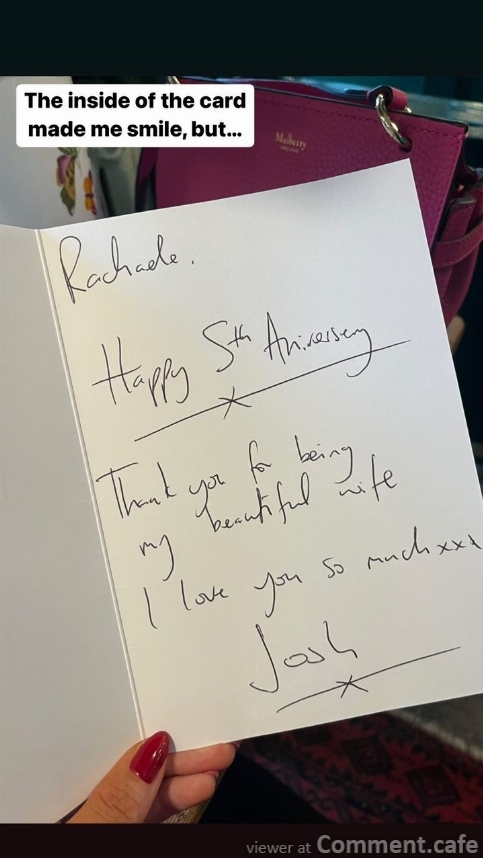 The inside of the card
made me smile, but...
Mulberry
Rachaele.
Happy 5th Aniversery
x
Thank you for being
my beautiful wife
I love you so much xxx
Josh
x
viewer at Comment.cafe